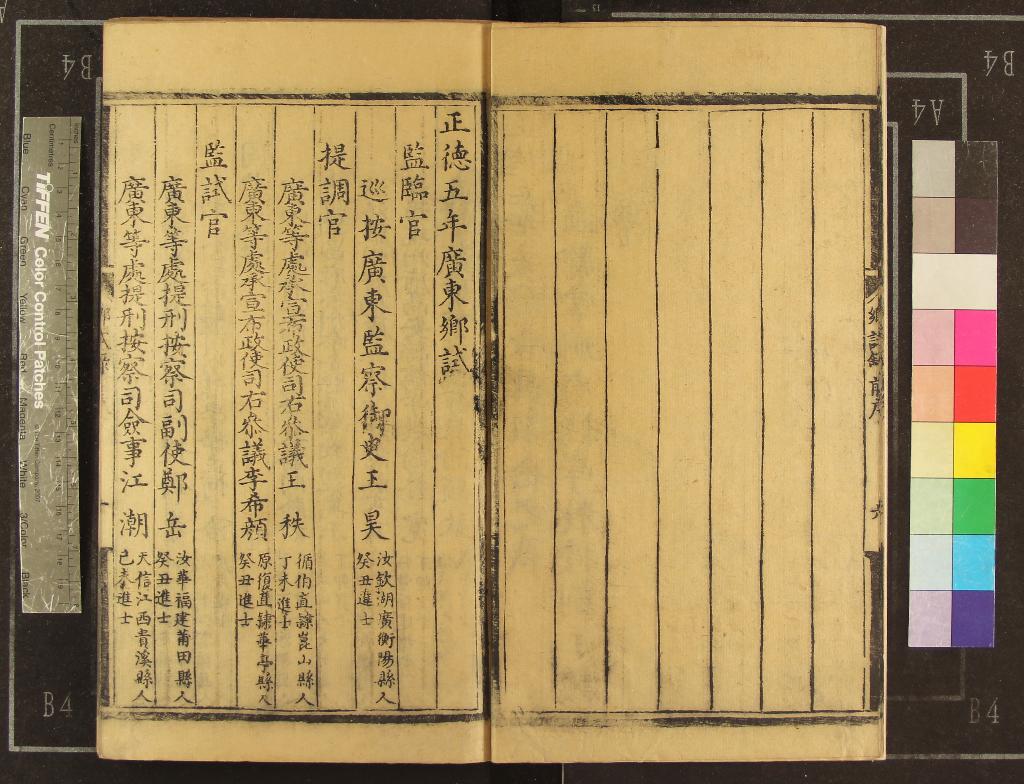 鄉試錄前序
正德五年廣東鄉試
監臨官
巡按廣東監察御史王昊 汝欽湖廣衡陽縣人
癸丑進士
提調官
廣東等處承宣布政使司右叅議王秩 循伯直隸崑山縣人
丁未進士
廣東等處承宣布政使司右叅議李希顏 原復直隸華亭縣人
癸丑進士
監試官
廣東等處提刑按察司副使鄭岳 汝華福建莆田縣人
癸丑進士
廣東等處提刑按察司僉事江潮 天信江西貴溪縣人
己未進士
B4
B4
A4
B4
B4
TIFFEN Color Control Patches
Blue
Cyan
Green
Yellow
Red
Magenta
White
3/Color
Black
Centimetres